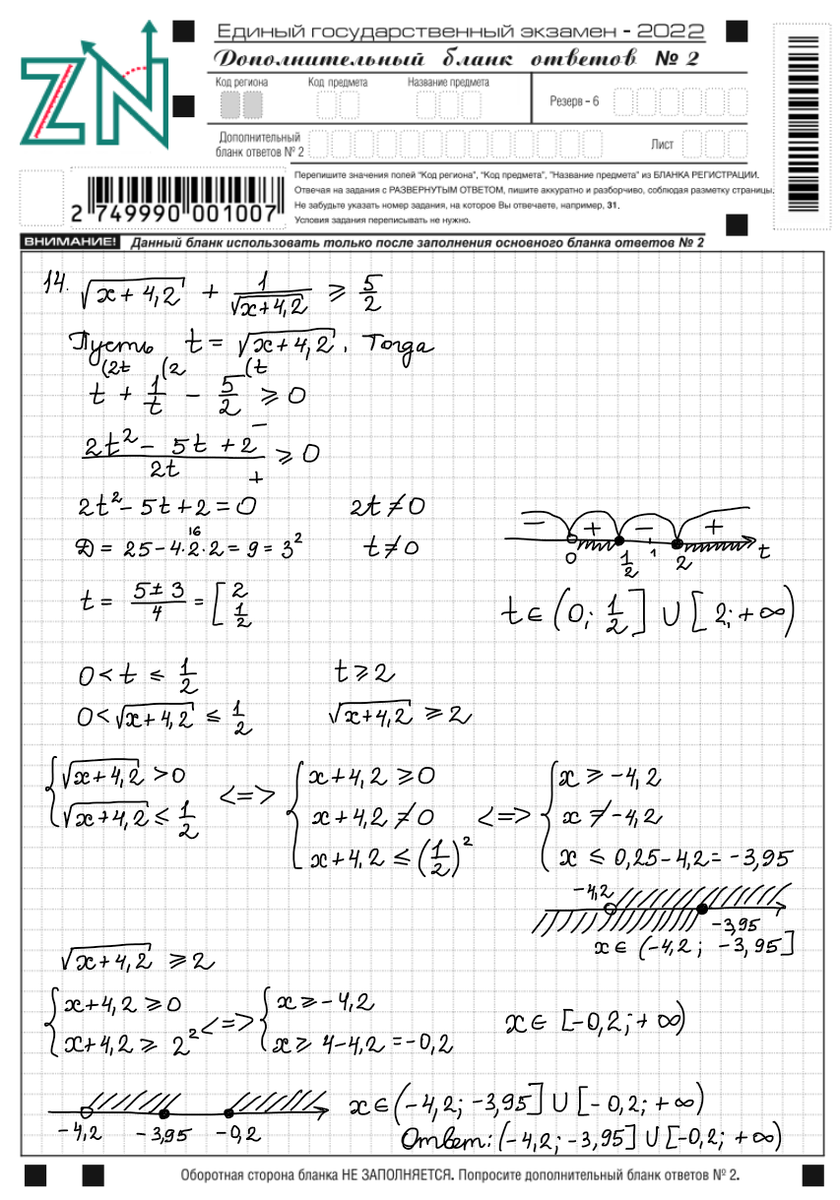 ZN
Единый государственный экзамен - 2022
Дополнительный бланк ответов № 2
Код региона
Код предмета
Название предмета
Резерв - 6
Дополнительный
бланк ответов № 2
Лист
2 749990 001007
Перепишите значения полей "Код региона", "Код предмета", "Название предмета" из БЛАНКА РЕГИСТРАЦИИ.
Отвечая на задания с РАЗВЕРНУТЫМ ОТВЕТОМ, пишите аккуратно и разборчиво, соблюдая разметку страницы.
Не забудьте указать номер задания, на которое Вы отвечаете, например, 31.
Условия задания переписывать не нужно.
ВНИМАНИЕ! Данный бланк использовать только после заполнения основного бланка ответов № 2
14. √(x+4,2) + 1/√(x+4,2) ⩾ 5/2
Пусть t = √(x+4,2). Тогда
(2t (2 (t
t + 1/t − 5/2 ⩾ 0
(2t² − 5t + 2)/(2t) ⩾ 0
− +
2t² − 5t + 2 = 0 2t ≠ 0
16
Д = 25 − 4·2·2 = 9 = 3² t ≠ 0
− + − +
0 1/2 1 2 t
t = (5±3)/4 = [ 2 1/2
t ∈ (0; 1/2] ∪ [2; +∞)
0 < t ⩽ 1/2 t ⩾ 2
0 < √(x+4,2) ⩽ 1/2 √(x+4,2) ⩾ 2
{ √(x+4,2) > 0 <=> { x+4,2 ⩾ 0 <=> { x ⩾ −4,2
√(x+4,2) ⩽ 1/2 x+4,2 ≠ 0 x ≠ −4,2
x+4,2 ⩽ (1/2)² x ⩽ 0,25−4,2 = −3,95
−4,2 −3,95
x ∈ (−4,2; −3,95]
√(x+4,2) ⩾ 2
{ x+4,2 ⩾ 0 <=> { x ⩾ −4,2
x+4,2 ⩾ 2² x ⩾ 4−4,2 = −0,2
x ∈ [−0,2; +∞)
−4,2 −3,95 −0,2
x ∈ (−4,2; −3,95] ∪ [−0,2; +∞)
Ответ: (−4,2; −3,95] ∪ [−0,2; +∞)
Оборотная сторона бланка НЕ ЗАПОЛНЯЕТСЯ. Попросите дополнительный бланк ответов № 2.